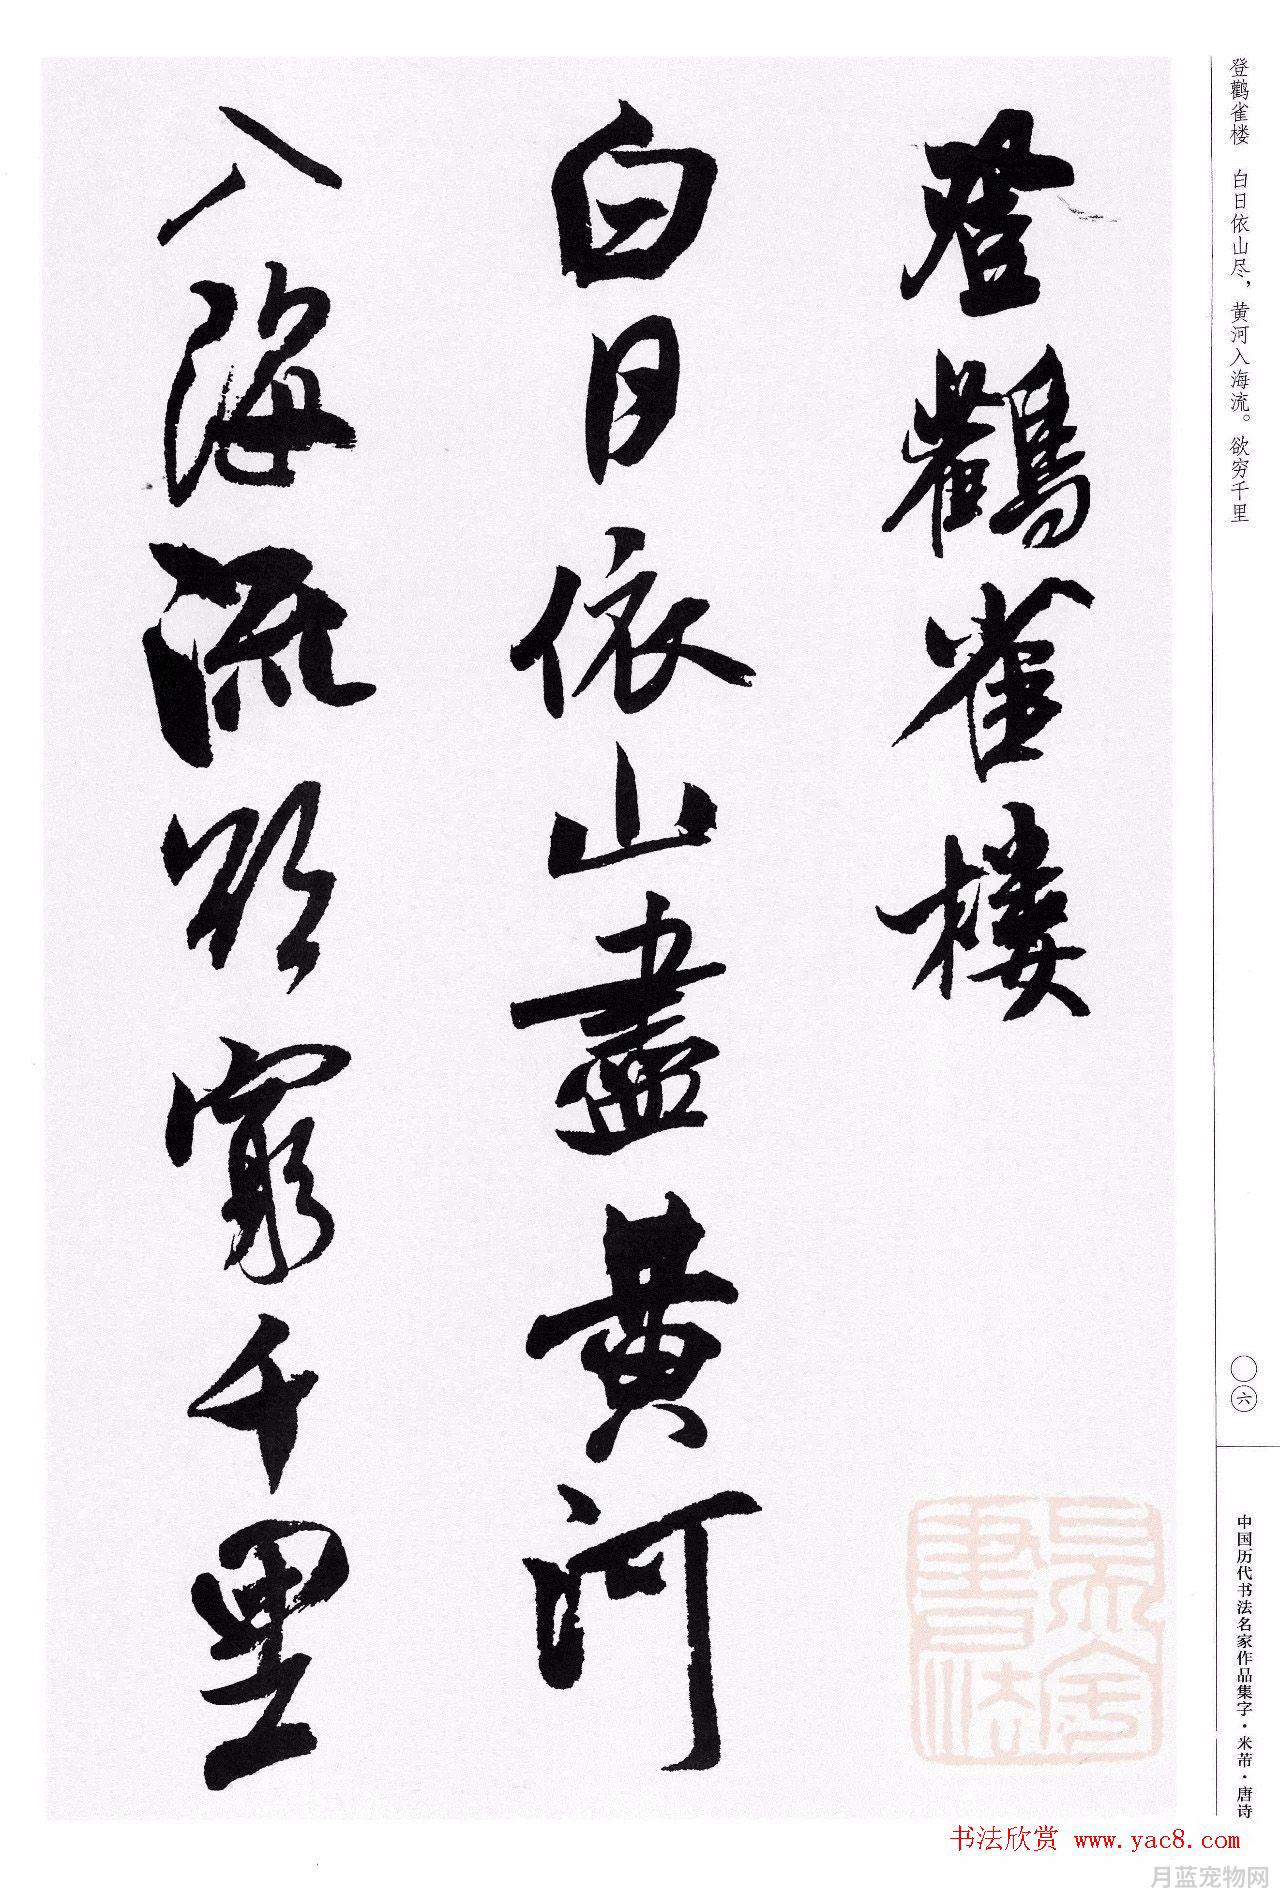 登鸛雀樓
白日依山盡黄河
入海流欲窮千里
登鹳雀楼 白日依山尽，黄河入海流。欲穷千里
〇六
中国历代书法名家作品集字·米芾·唐诗
书法欣赏 www.yac8.com
月蓝宠物网